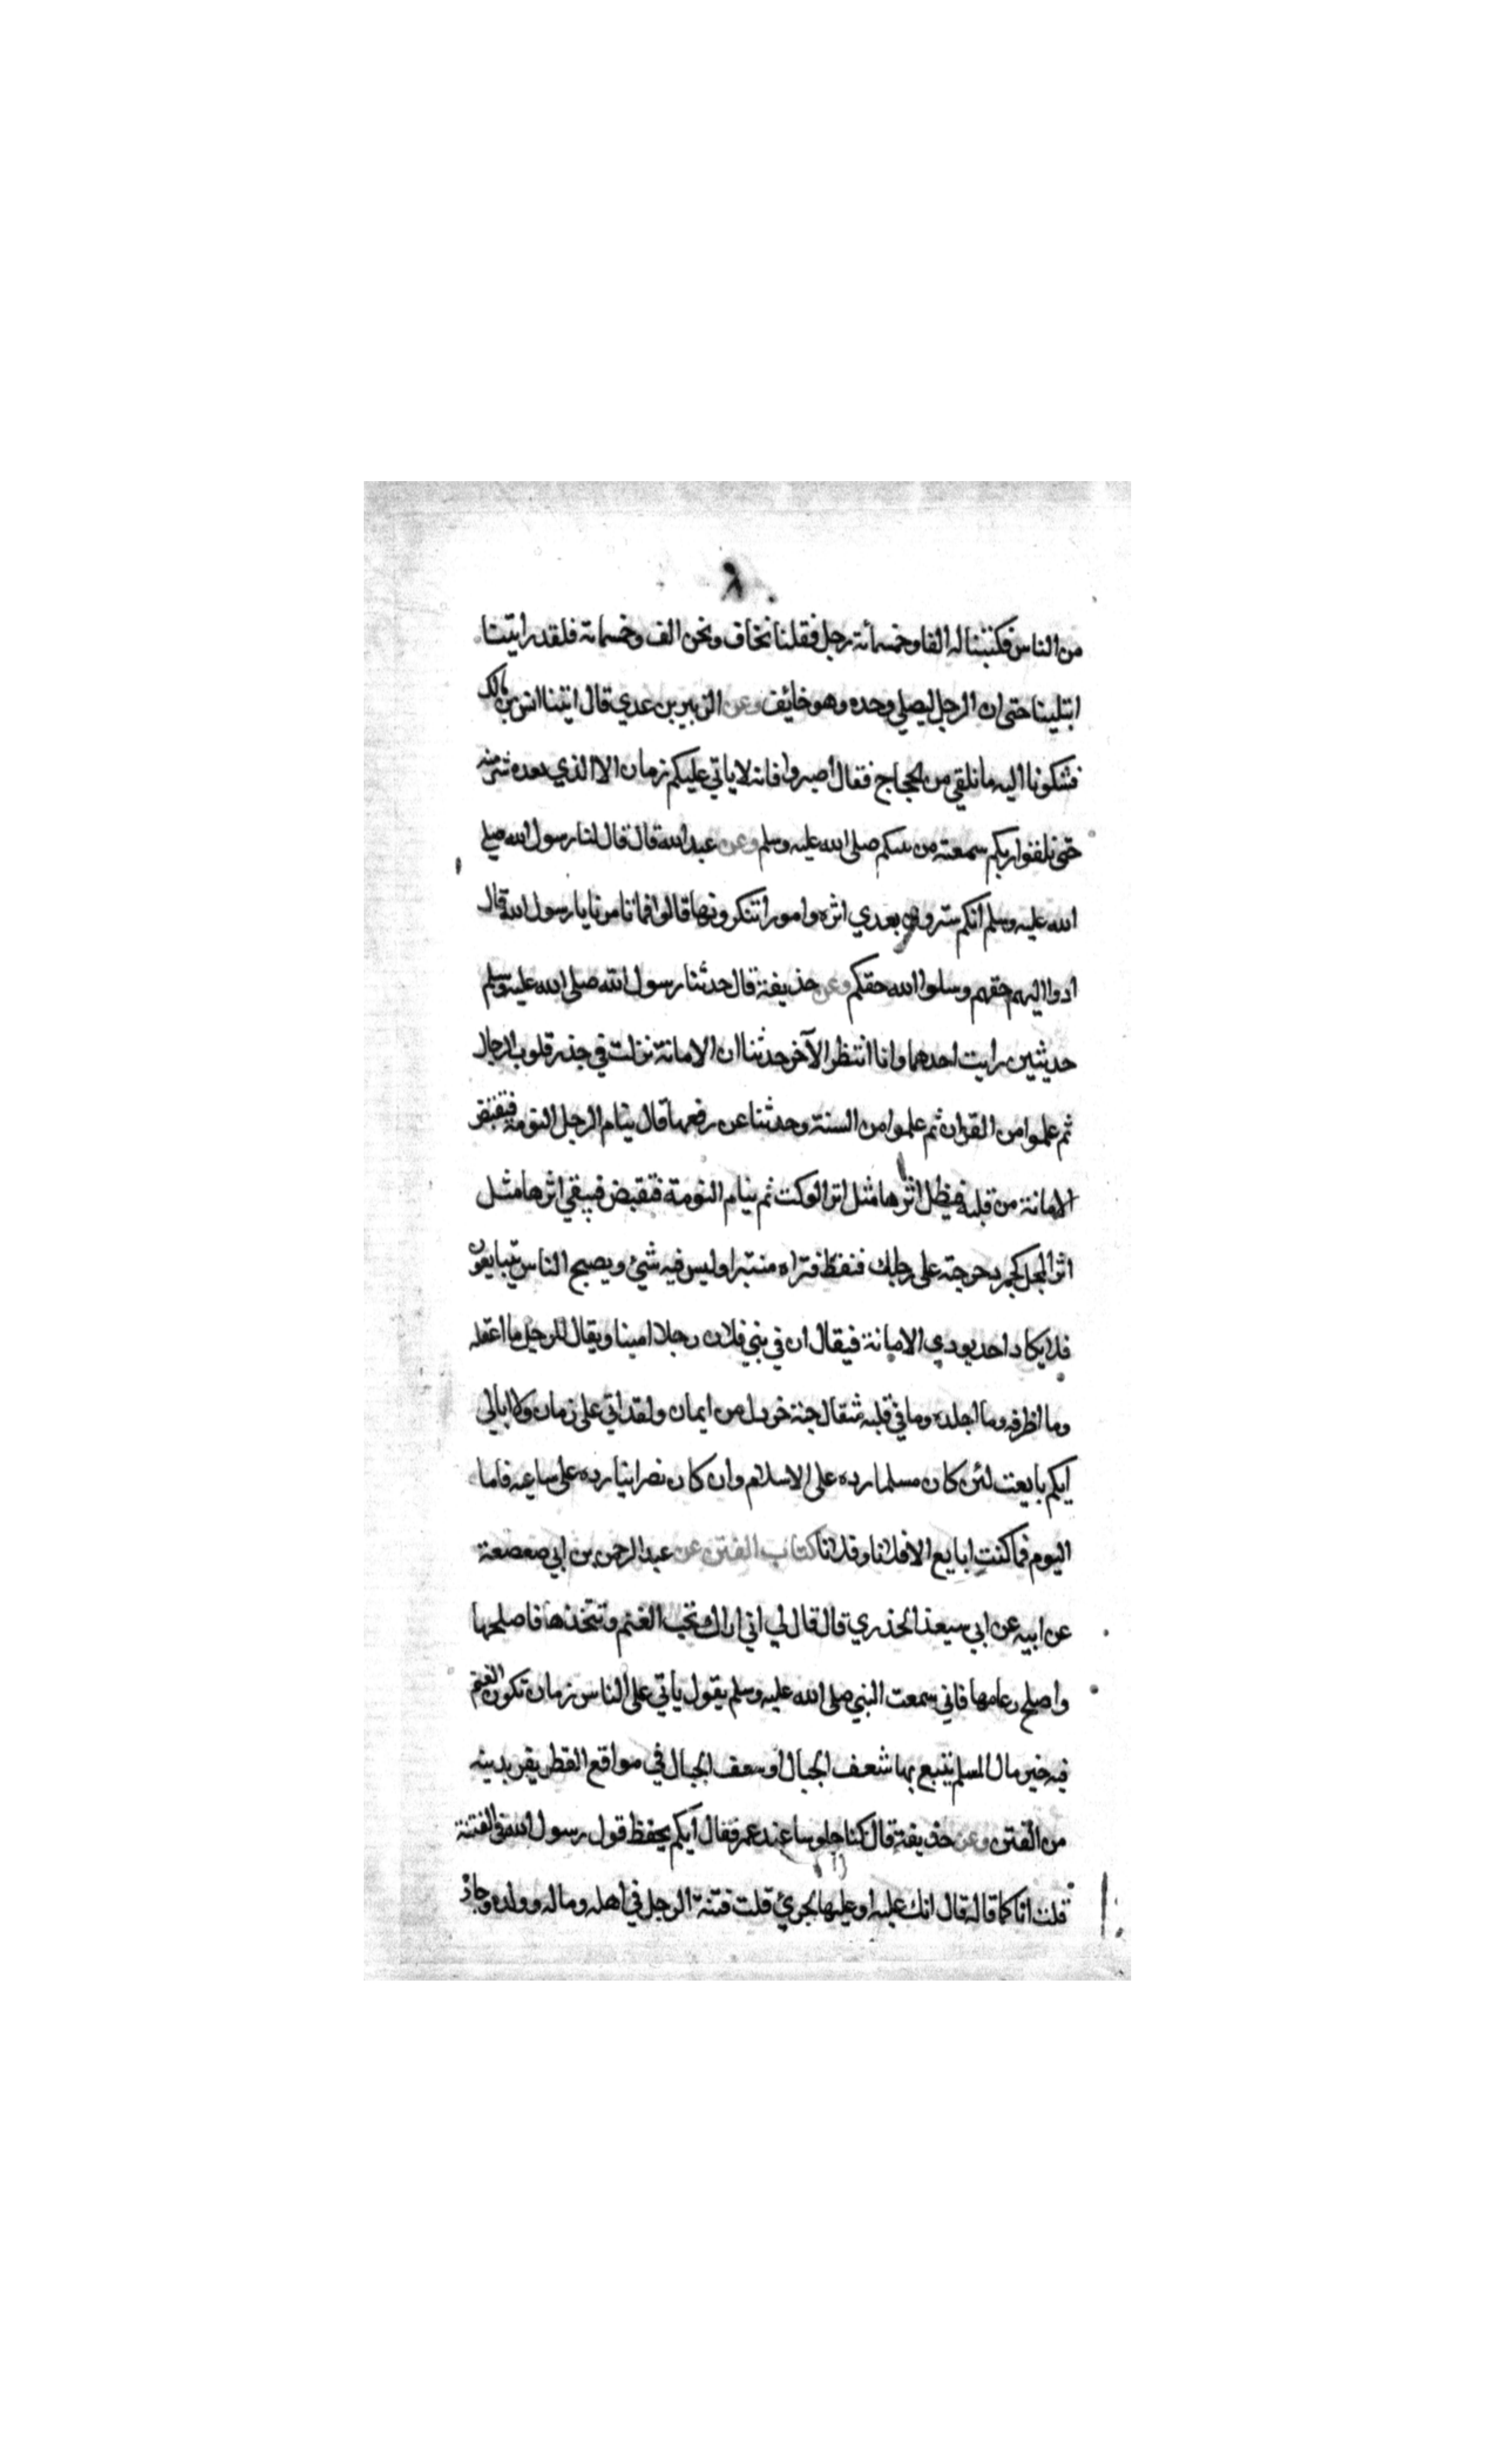 من الناس فكتبنا له الفا وخمسمائة رجل فقلنا نخاف ونحن الف وخمسمائة فلقد رايتنا
ابتلينا حتى ان الرجل ليصلي وحده وهو خايف وعن الزبير بن عدي قال اتينا انس بن مالك
فشكونا اليه ما نلقى من الحجاج فقال اصبروا فانه لا ياتي عليكم زمان الا الذي بعده شر منه
حتى تلقوا ربكم سمعته من نبيكم صلى الله عليه وسلم وعن عبد الله قال قال لنا رسول الله صلى
الله عليه وسلم انكم سترون بعدي اثرة وامورا تنكرونها قالوا فما تامرنا يا رسول الله قال
ادوا اليهم حقهم وسلوا الله حقكم وعن حذيفة قال حدثنا رسول الله صلى الله عليه وسلم
حديثين رايت احدهما وانا انتظر الآخر حدثنا ان الامانة نزلت في جذر قلوب الرجال
ثم علموا من القران ثم علموا من السنة وحدثنا عن رفعها قال ينام الرجل النومة فتقبض
الامانة من قلبه فيظل اثرها مثل اثر الوكت ثم ينام النومة فتقبض فيبقى اثرها مثل
اثر المجل كجمر دحرجته على رجلك فنفط فتراه منتبرا وليس فيه شئ ويصبح الناس يتبايعون
فلا يكاد احد يودي الامانة فيقال ان في بني فلان رجلا امينا ويقال للرجل ما اعقله
وما اظرفه وما اجلده وما في قلبه مثقال حبة خردل من ايمان ولقد اتى على زمان ولا ابالي
ايكم بايعت لئن كان مسلما رده على الاسلام وان كان نصرانيا رده على ساعيه فاما
اليوم فما كنت ابايع الا فلانا وفلانا كتاب الفتن عن عبد الرحمن بن ابي صعصعة
عن ابيه عن ابي سيعد الخذري قال قال لي اني اراك تحب الغنم وتتخذها فاصلحها
واصلح رعامها فاني سمعت النبي صلى الله عليه وسلم يقول ياتي على الناس زمان تكون الغنم
فيه خير مال المسلم يتبع بها شعف الجبال او سعف الجبال في مواقع القطر يفر بدينه
من الفتن وعن حذيفة قال كنا جلوسا عند عمر فقال ايكم يحفظ قول رسول الله في الفتنة
قلت انا كما قاله قال انك عليه او عليها لجرئ قلت فتنة الرجل في اهله وماله وولده وجاره